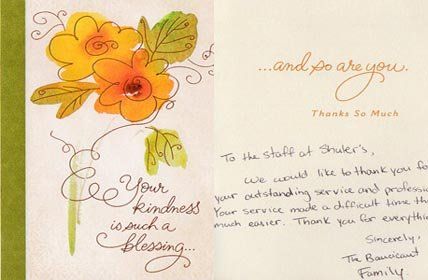 Your
kindness
is such a
blessing...
...and so are you.
Thanks So Much
To the staff at Shuler's,
We would like to thank you for
your outstanding service and professio
Your service made a difficult time tha
much easier. Thank you for everythin
Sincerely,
The
Family.